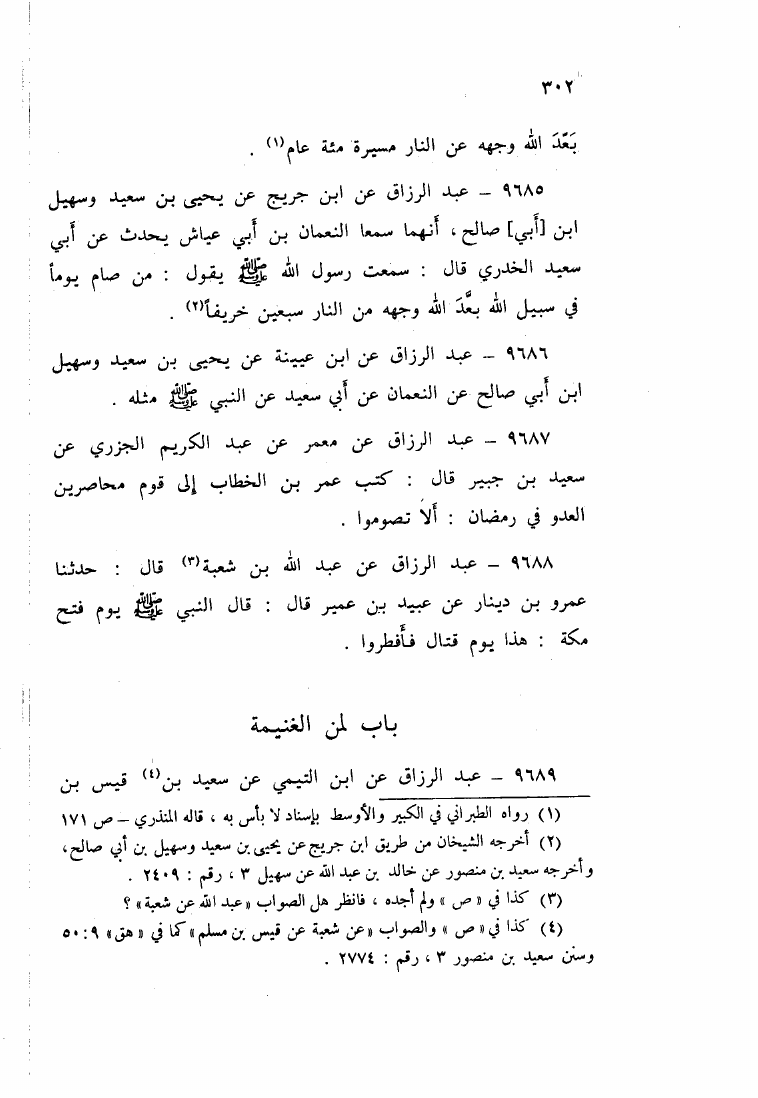 ٣٠٢
بَعَّدَ الله وجهه عن النار مسيرة مئة عام(١) .
٩٦٨٥ – عبد الرزاق عن ابن جريج عن يحيى بن سعيد وسهيل
ابن [أبي] صالح، أنهما سمعا النعمان بن أبي عياش يحدث عن أبي
سعيد الخدري قال : سمعت رسول الله ﷺ يقول : من صام يوماً
في سبيل الله بعَّدَ الله وجهه من النار سبعين خريفاً(٢) .
٩٦٨٦ – عبد الرزاق عن ابن عيينة عن يحيى بن سعيد وسهيل
ابن أبي صالح عن النعمان عن أبي سعيد عن النبي ﷺ مثله .
٩٦٨٧ – عبد الرزاق عن معمر عن عبد الكريم الجزري عن
سعيد بن جبير قال : كتب عمر بن الخطاب إلى قوم محاصرين
العدو في رمضان : ألا تصوموا .
٩٦٨٨ – عبد الرزاق عن عبد الله بن شعبة(٣) قال : حدثنا
عمرو بن دينار عن عبيد بن عمير قال : قال النبي ﷺ يوم فتح
مكة : هذا يوم قتال فأفطروا .
باب لمن الغنيمة
٩٦٨٩ – عبد الرزاق عن ابن التيمي عن سعيد بن(٤) قيس بن
(١) رواه الطبراني في الكبير والأوسط بإسناد لا بأس به ، قاله المنذري – ص ١٧١
(٢) أخرجه الشيخان من طريق ابن جريج عن يحيى بن سعيد وسهيل بن أبي صالح،
وأخرجه سعيد بن منصور عن خالد بن عبد الله عن سهيل ٣ ، رقم : ٢٤٠٩ .
(٣) كذا في « ص » ولم أجده ، فانظر هل الصواب «عبد الله عن شعبة» ؟
(٤) كذا في « ص » والصواب «عن شعبة عن قيس بن مسلم» كما في « هق » ٩ : ٥٠
وسنن سعيد بن منصور ٣ ، رقم : ٢٧٧٤ .